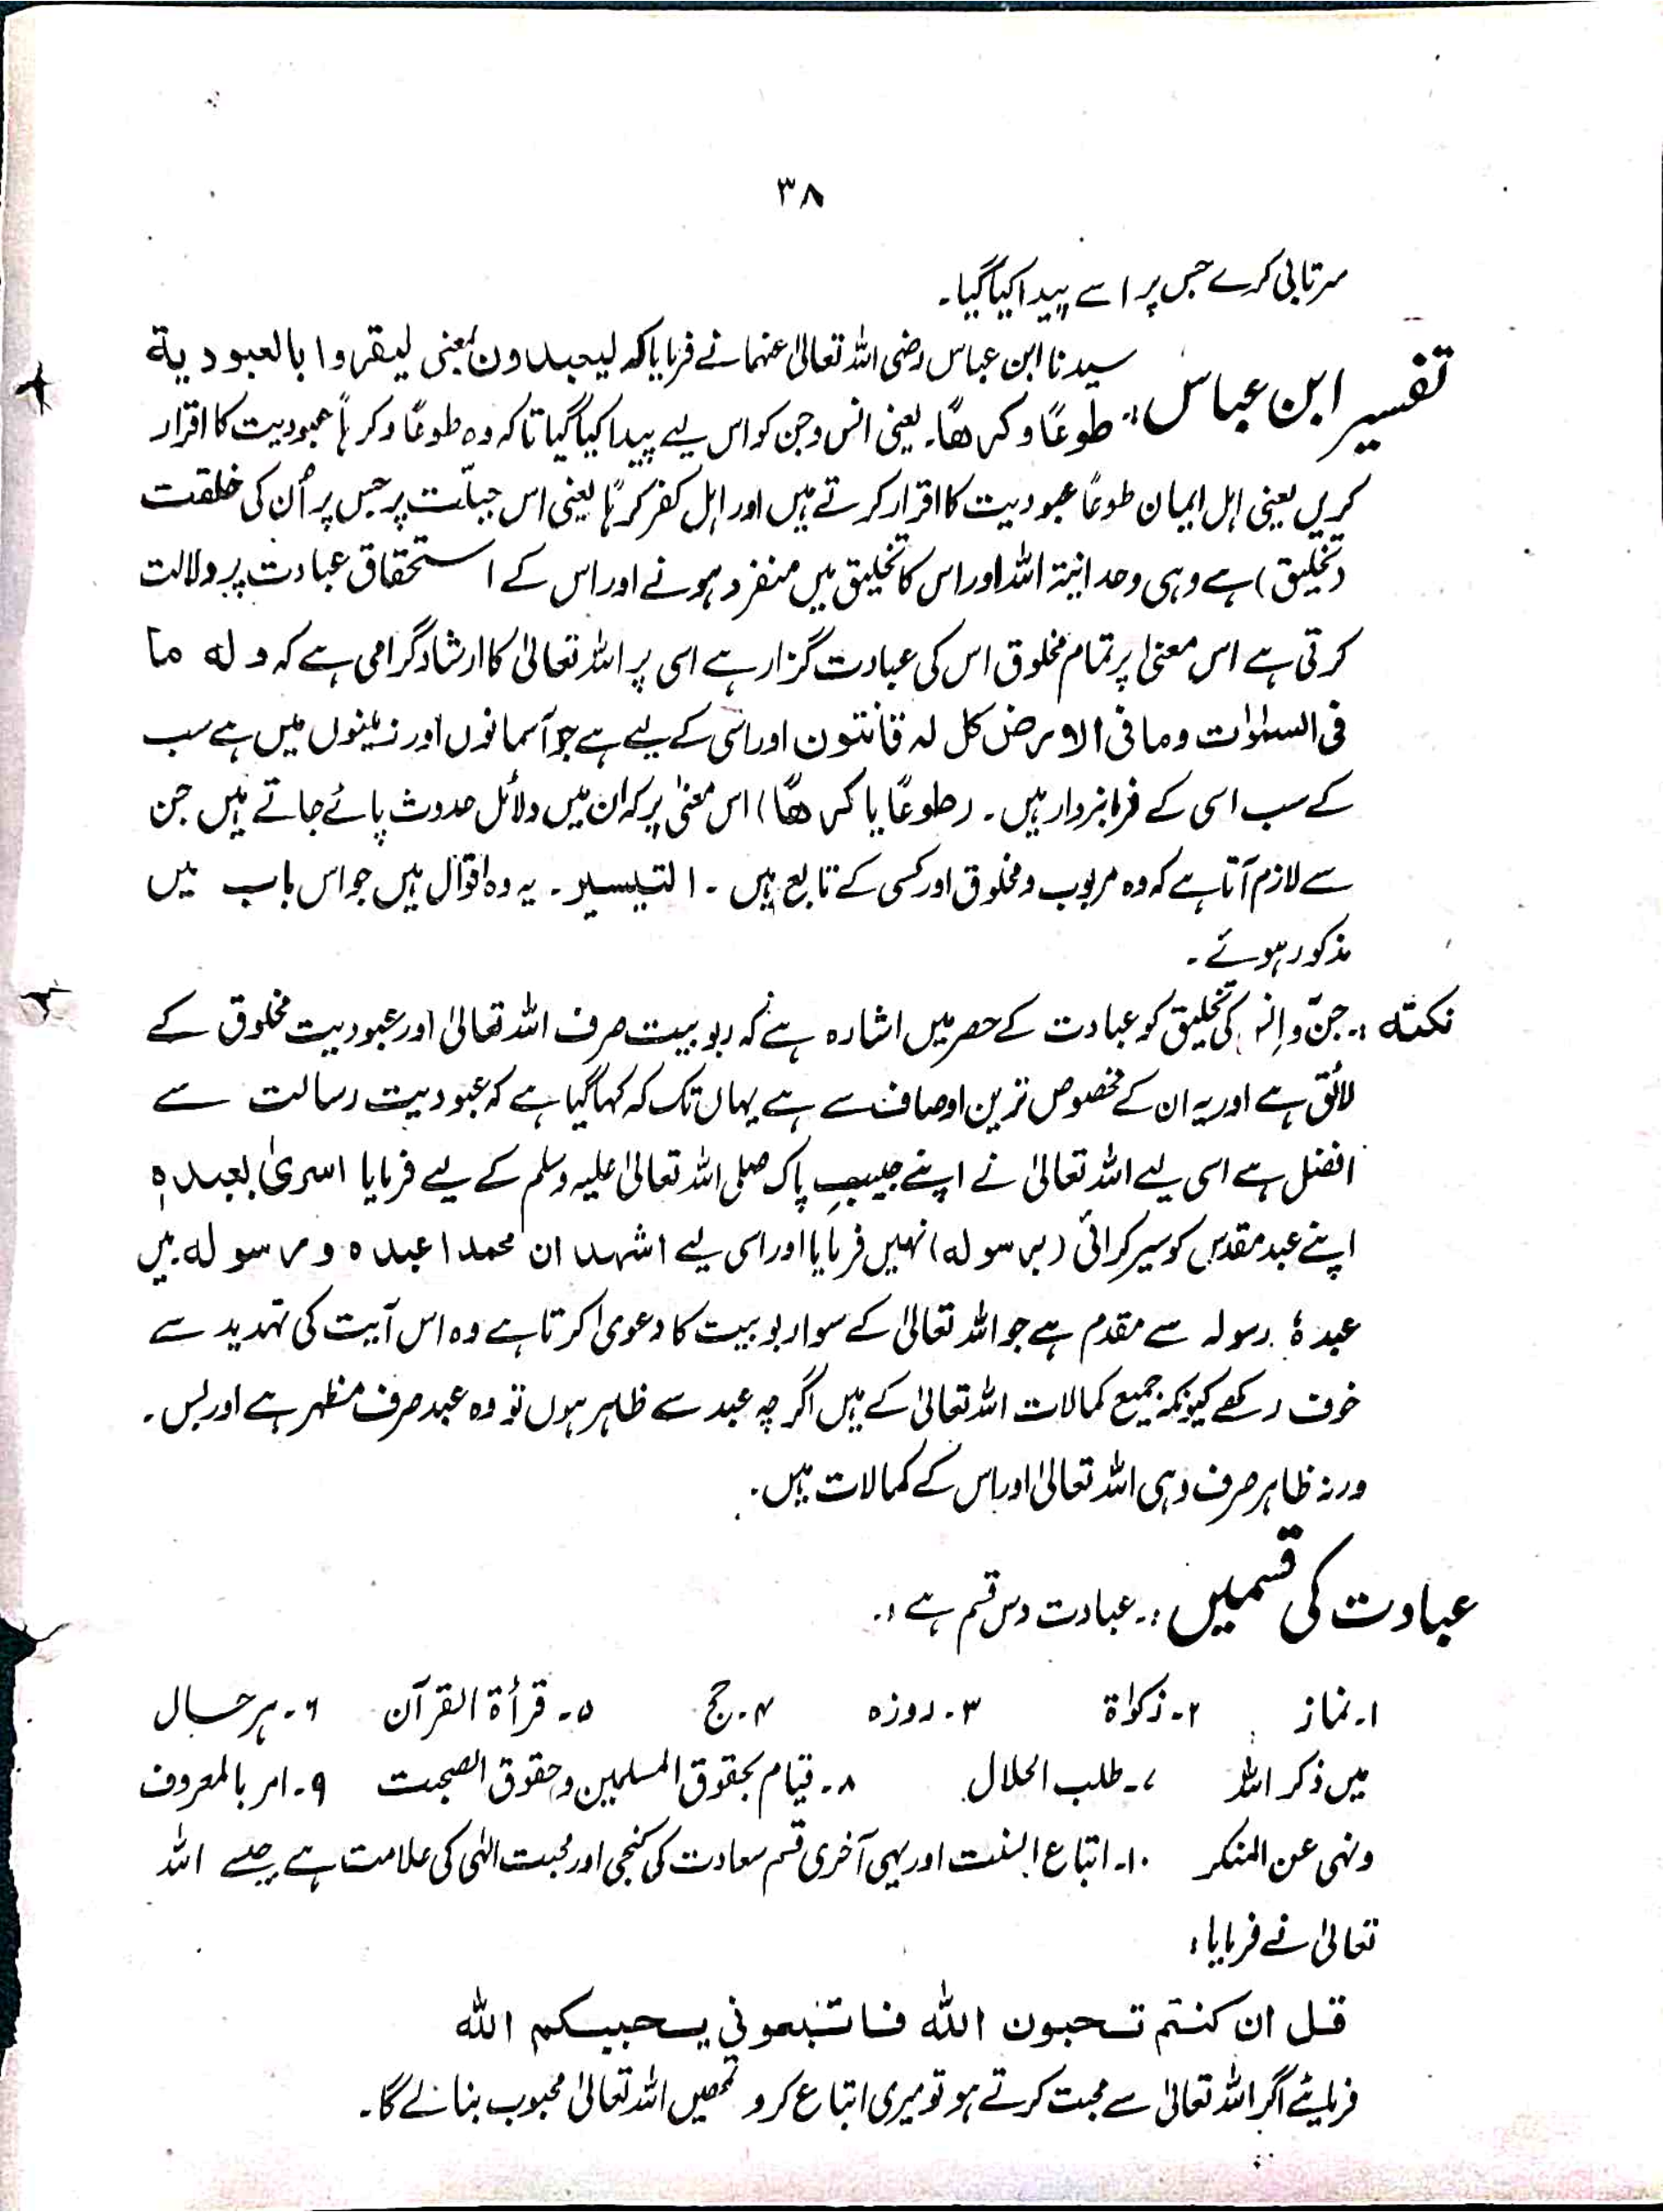 ٣٨
سرتابی کرے جس پر اسے پیدا کیا گیا۔
تفسیر ابن عباس:۔ سیدنا ابن عباس رضی اللہ تعالیٰ عنہما نے فرمایا کہ لیعبدون بمعنی لیقروا بالعبودیة
طوعًا وکرھًا۔ یعنی انس و جن کو اس لیے پیدا کیا گیا تاکہ وہ طوعًا و کرہًا عبودیت کا اقرار
کریں یعنی اہل ایمان طوعًا عبودیت کا اقرار کرتے ہیں اور اہل کفر کرہًا یعنی اس جبلّت پر جس پر اُن کی خلقت
(تخلیق) ہے وہی وحدانیۃ اللہ اور اس کا تخلیق میں منفرد ہونے اور اس کے استحقاق عبادت پر دلالت
کرتی ہے اس معنیٰ پر تمام مخلوق اس کی عبادت گزار ہے اسی پر اللہ تعالیٰ کا ارشاد گرامی ہے کہ وله ما
فی السمٰوٰت وما فی الارض کل له قانتون اور اسی کے لیے ہے جو آسمانوں اور زمینوں میں ہے سب
کے سب اسی کے فرمانبردار ہیں۔ (طوعًا یا کرھًا) اس معنیٰ پر کہ ان میں دلائل حدوث پائے جاتے ہیں جن
سے لازم آتا ہے کہ وہ مربوب و مخلوق اور کسی کے تابع ہیں۔ التیسیر۔ یہ وہ اقوال ہیں جو اس باب میں
مذکور ہوئے۔
نکتہ:۔ جنّ و اِنس کی تخلیق کو عبادت کے حصر میں اشارہ ہے کہ ربوبیت صرف اللہ تعالیٰ اور عبودیت مخلوق کے
لائق ہے اور یہ ان کے مخصوص ترین اوصاف سے ہے یہاں تک کہ کہا گیا ہے کہ عبودیت رسالت سے
افضل ہے اسی لیے اللہ تعالیٰ نے اپنے حبیبِ پاک صلی اللہ تعالیٰ علیہ وسلم کے لیے فرمایا اسریٰ بعبدہٖ
اپنے عبد مقدس کو سیر کرائی (برسوله) نہیں فرمایا اور اسی لیے اشہد ان محمدا عبدہ و رسوله میں
عبدہٗ رسولہ سے مقدم ہے جو اللہ تعالیٰ کے سوا ربوبیت کا دعویٰ کرتا ہے وہ اس آیت کی تہدید سے
خوف رکھے کیونکہ جمیع کمالات اللہ تعالیٰ کے ہیں اگرچہ عبد سے ظاہر ہوں تو وہ عبد صرف مظہر ہے اور بس۔
ورنہ ظاہر صرف وہی اللہ تعالیٰ اور اس کے کمالات ہیں۔
عبادت کی قسمیں:۔ عبادت دس قسم ہے:۔
۱۔ نماز ۲۔ زکوٰۃ ۳۔ روزہ ۴۔ حج ۵۔ قرأۃ القرآن ۶۔ ہر حال
میں ذکر اللہ ۷۔ طلب الحلال ۸۔ قیام بحقوق المسلمین و حقوق الصحبت ۹۔ امر بالمعروف
ونہی عن المنکر ۱۰۔ اتباع السنت اور یہی آخری قسم سعادت کی کنجی اور محبت الٰہی کی علامت ہے جیسے اللہ
تعالیٰ نے فرمایا:
قل ان کنتم تحبون اللہ فاتبعونی یحببکم اللہ
فرمائیے اگر اللہ تعالیٰ سے محبت کرتے ہو تو میری اتباع کرو تمھیں اللہ تعالیٰ محبوب بنا لے گا۔